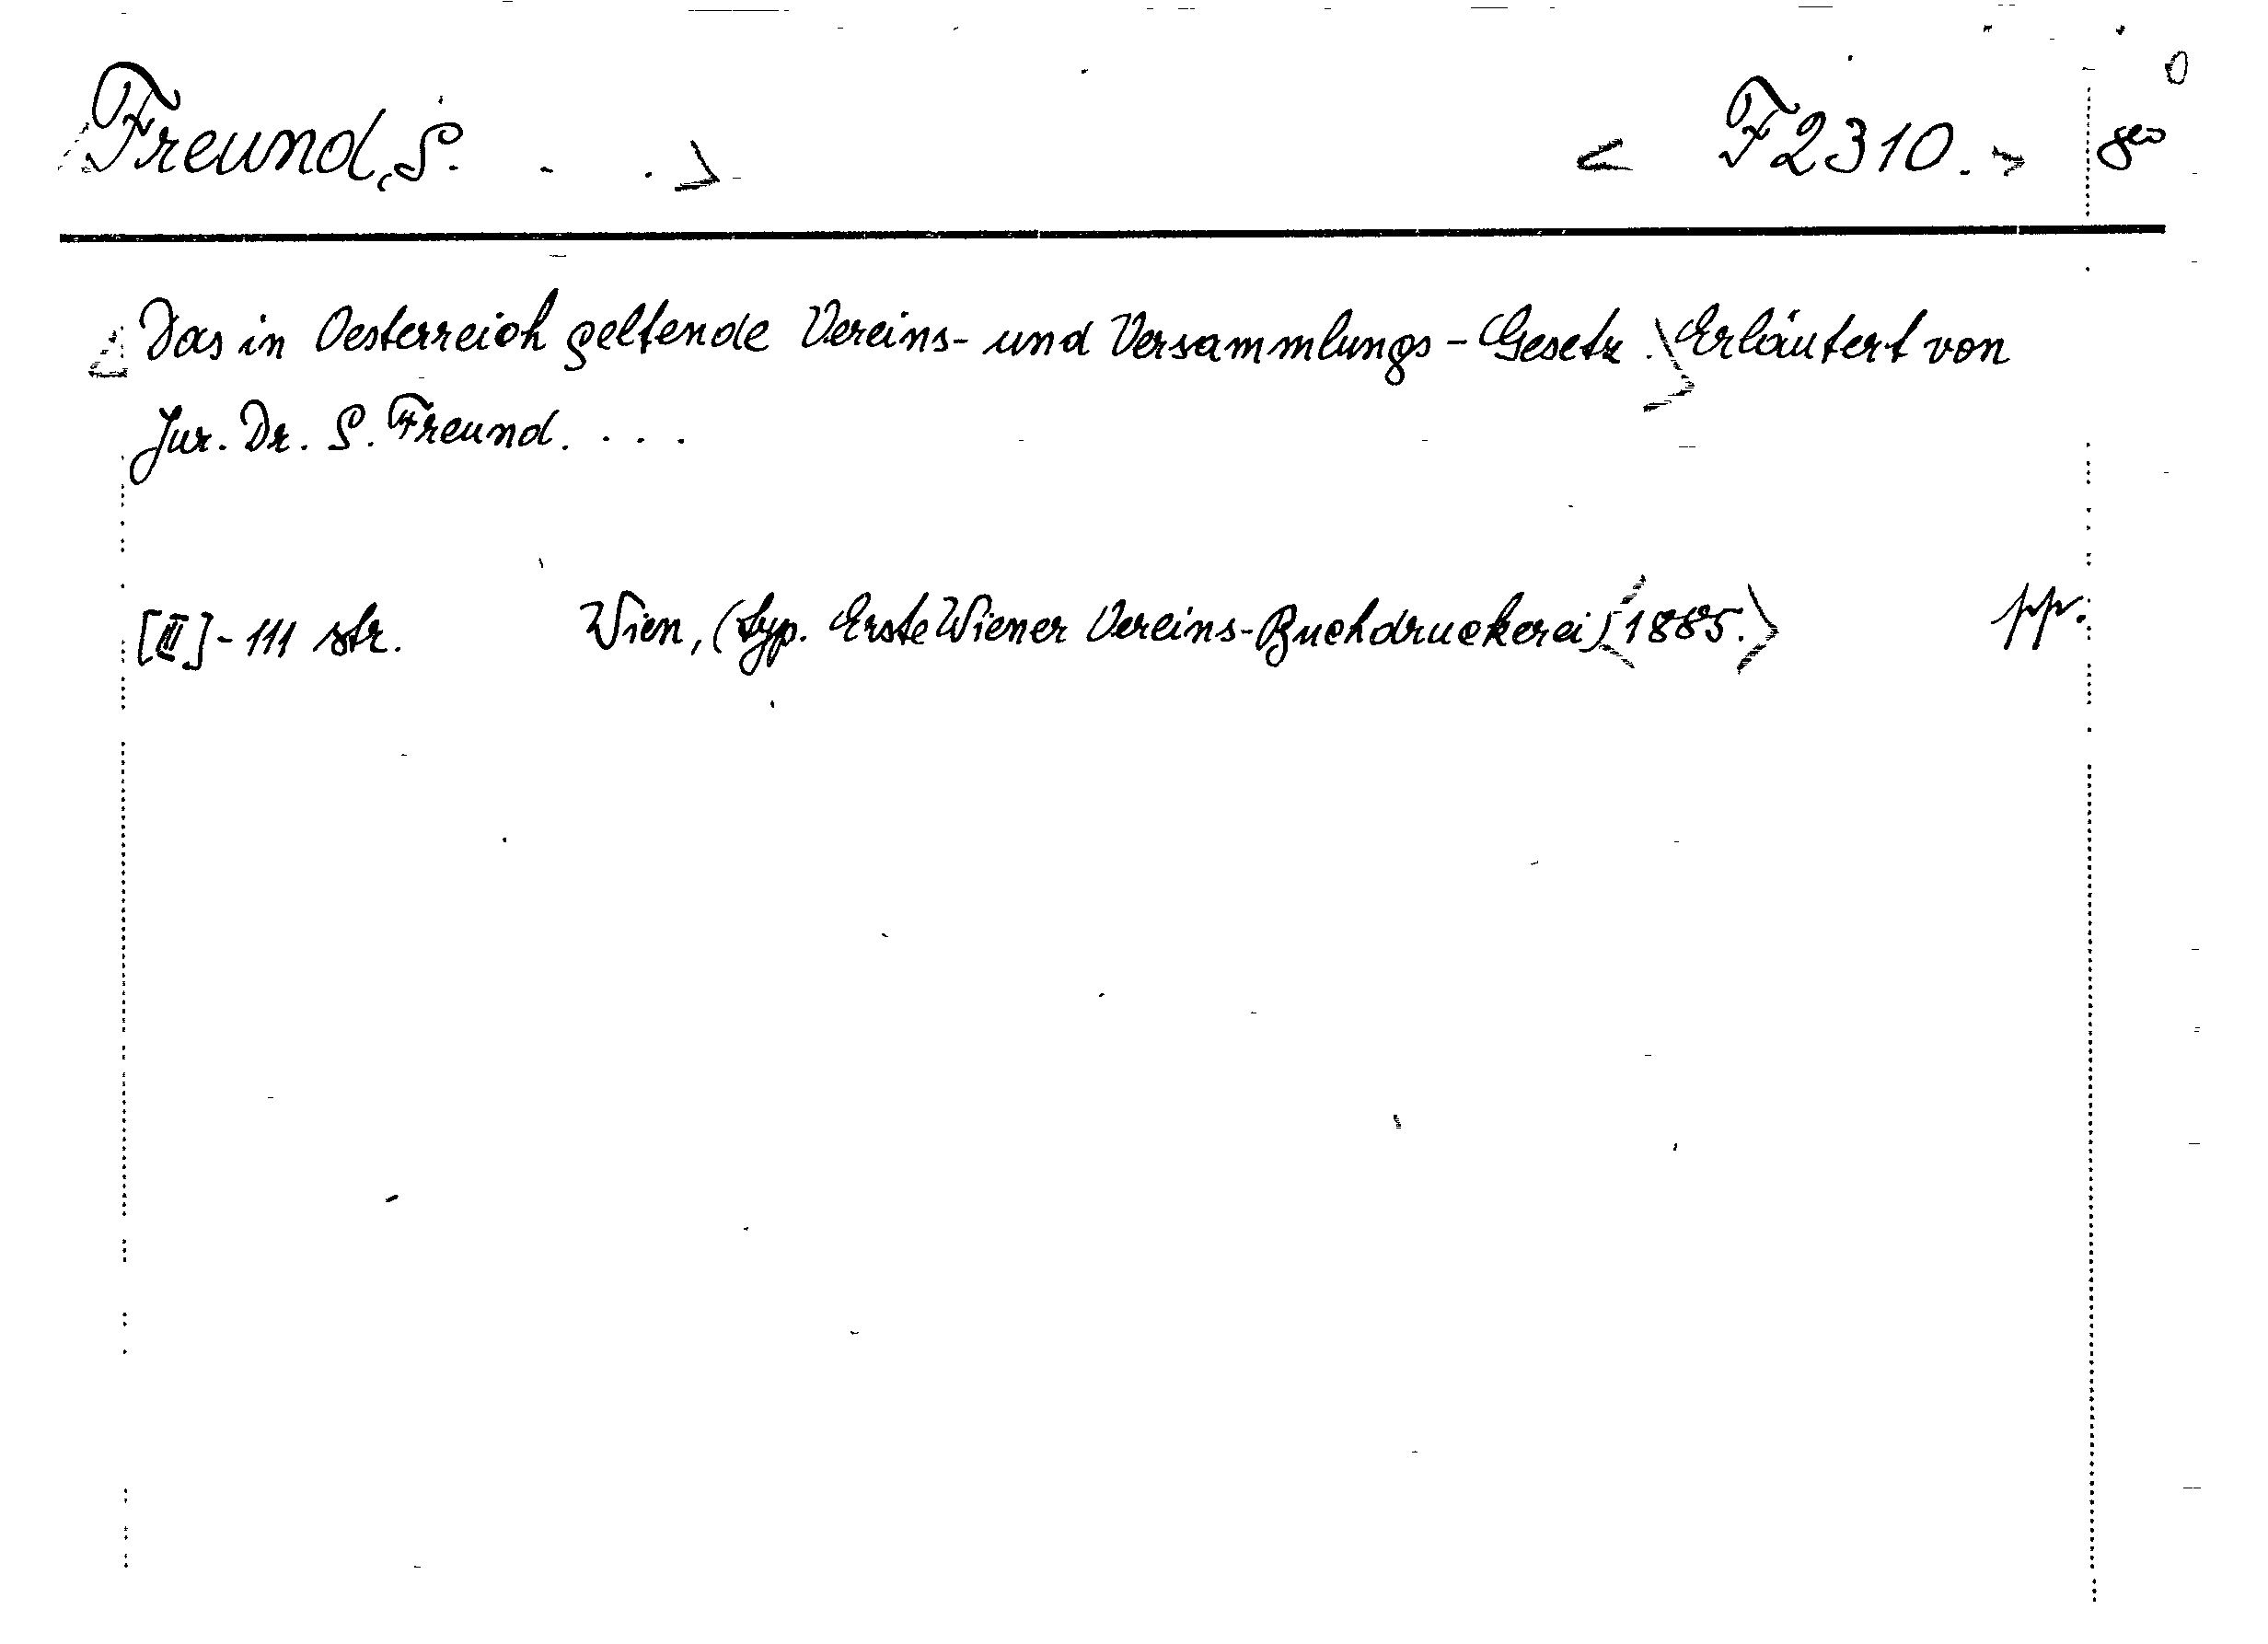 <Freund, S. . .> < F2310. > 8°
<Das in Oesterreich geltende Vereins- und Versammlungs-Gesetz.> Erläutert von
Jur. Dr. S. Freund. . . .
[III]-111 str. Wien, (typ. Erste Wiener Vereins-Buchdruckerei) <1885.> pp.